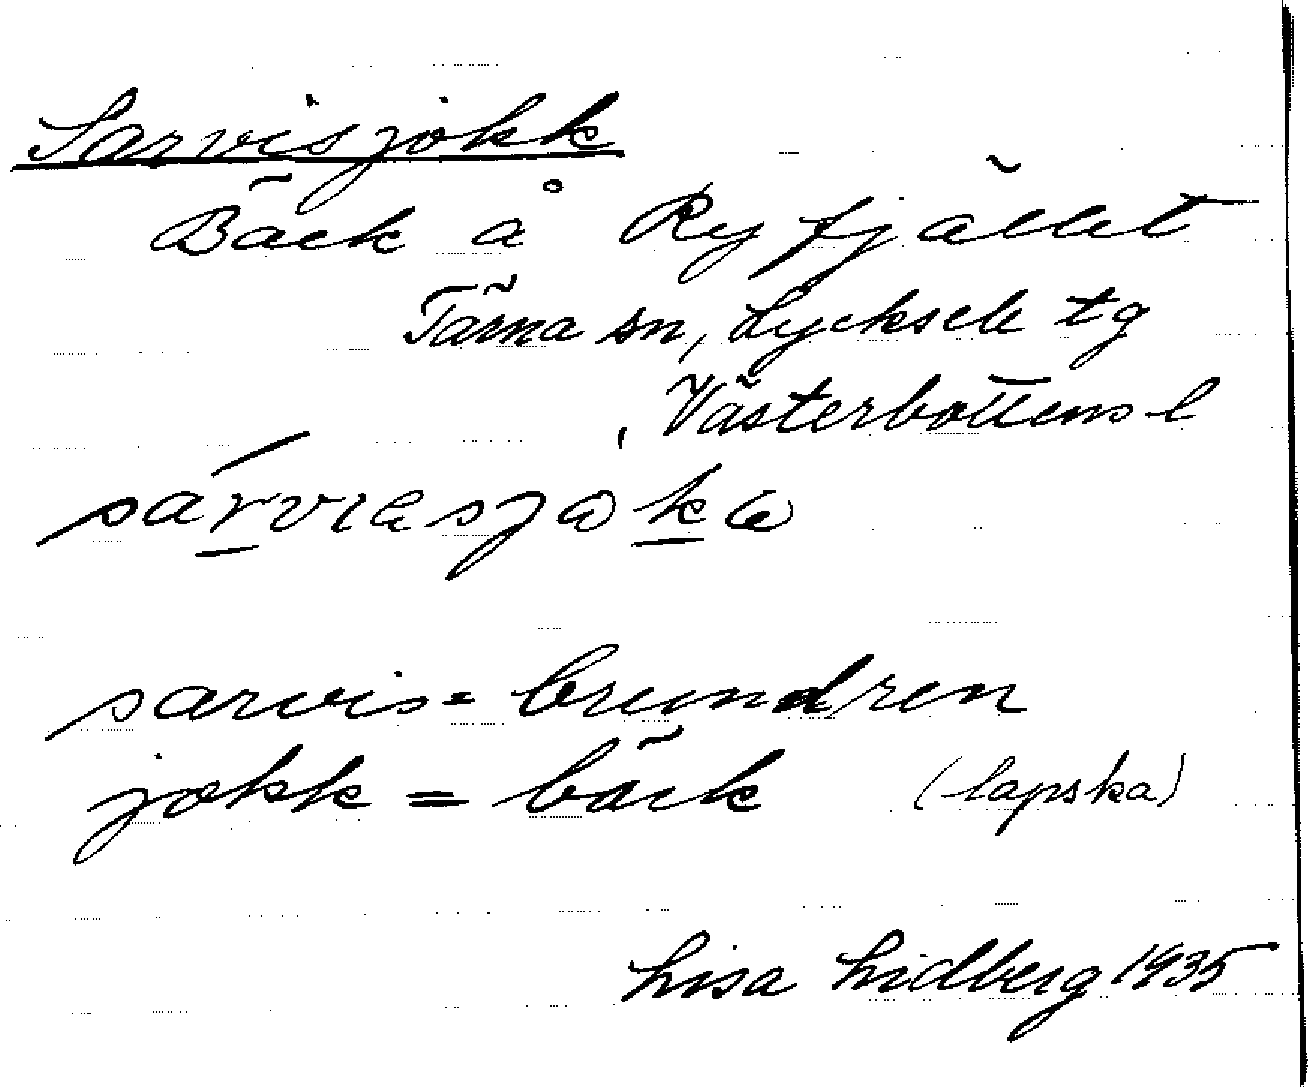 Sarvisjokk
Bäck å Ryfjället
Tärna sn, Lycksele tg
Västerbottens l
sarvis = brundren
jokk = bäck (lapska)
Lisa Lidberg 1935